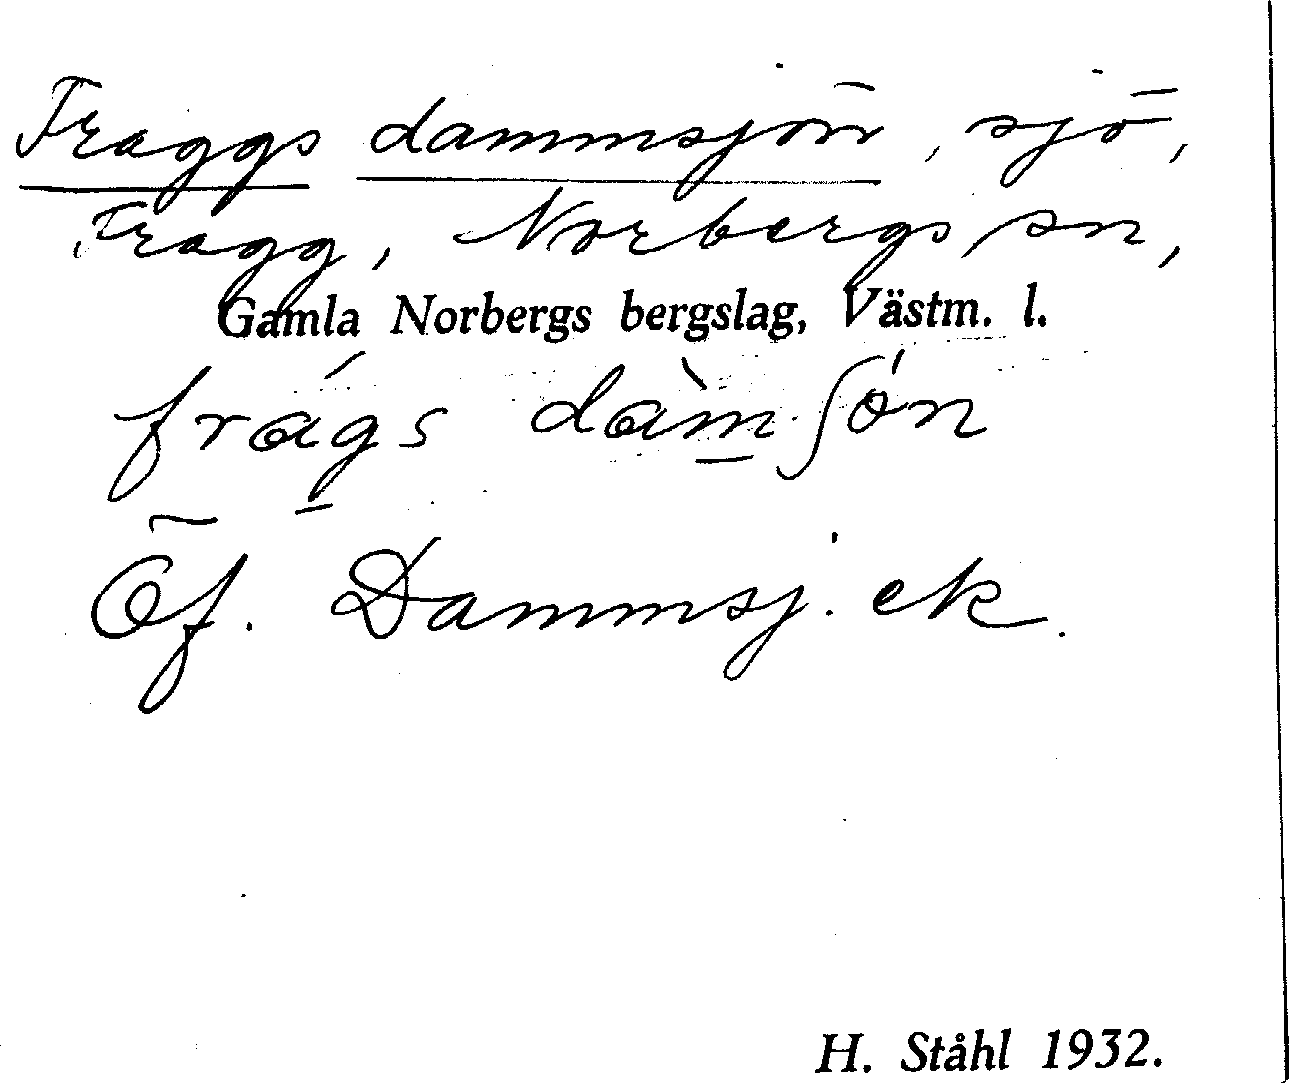 Fraggs dammsjön, sjö,
Fragg, Norbergs sn,
Gamla Norbergs bergslag, Västm. l.
frág̱s dàm̱ ʃón
Öf. Dammsj. ek.
H. Ståhl 1932.